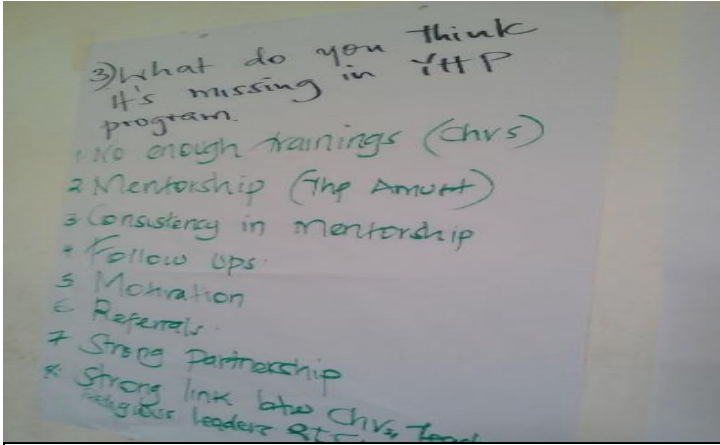 3) What do you think
it's missing in YHP
program.
1. No enough trainings (Chvs)
2 Mentorship (The Amutt)
3 Consistency in mentorship
4 Follow ups.
5 Motivation
6 Referrals.
7 Strong partnership
8. Strong link btw Chvs,
religious leaders